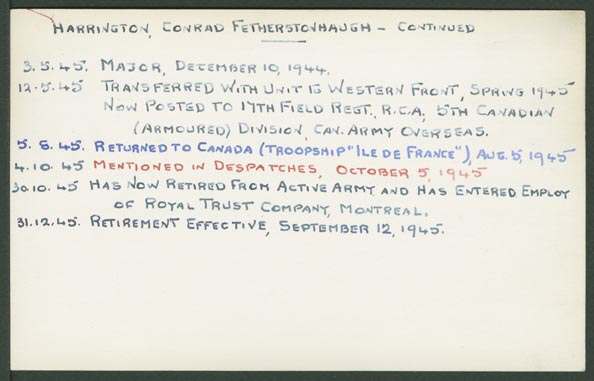 HARRINGTON, CONRAD FETHERSTONHAUGH – CONTINUED
3.5.45. MAJOR, DECEMBER 10, 1944.
12.5.45 TRANSFERRED WITH UNIT TO WESTERN FRONT, SPRING 1945
NOW POSTED TO 17TH FIELD REGT., R.C.A., 5TH CANADIAN
(ARMOURED) DIVISION, CAN. ARMY OVERSEAS.
5.8.45. RETURNED TO CANADA (TROOPSHIP "ILE DE FRANCE"), AUG. 5, 1945
4.10.45 MENTIONED IN DESPATCHES, OCTOBER 5, 1945
30.10.45 HAS NOW RETIRED FROM ACTIVE ARMY AND HAS ENTERED EMPLOY
OF ROYAL TRUST COMPANY, MONTREAL.
31.12.45. RETIREMENT EFFECTIVE, SEPTEMBER 12, 1945.